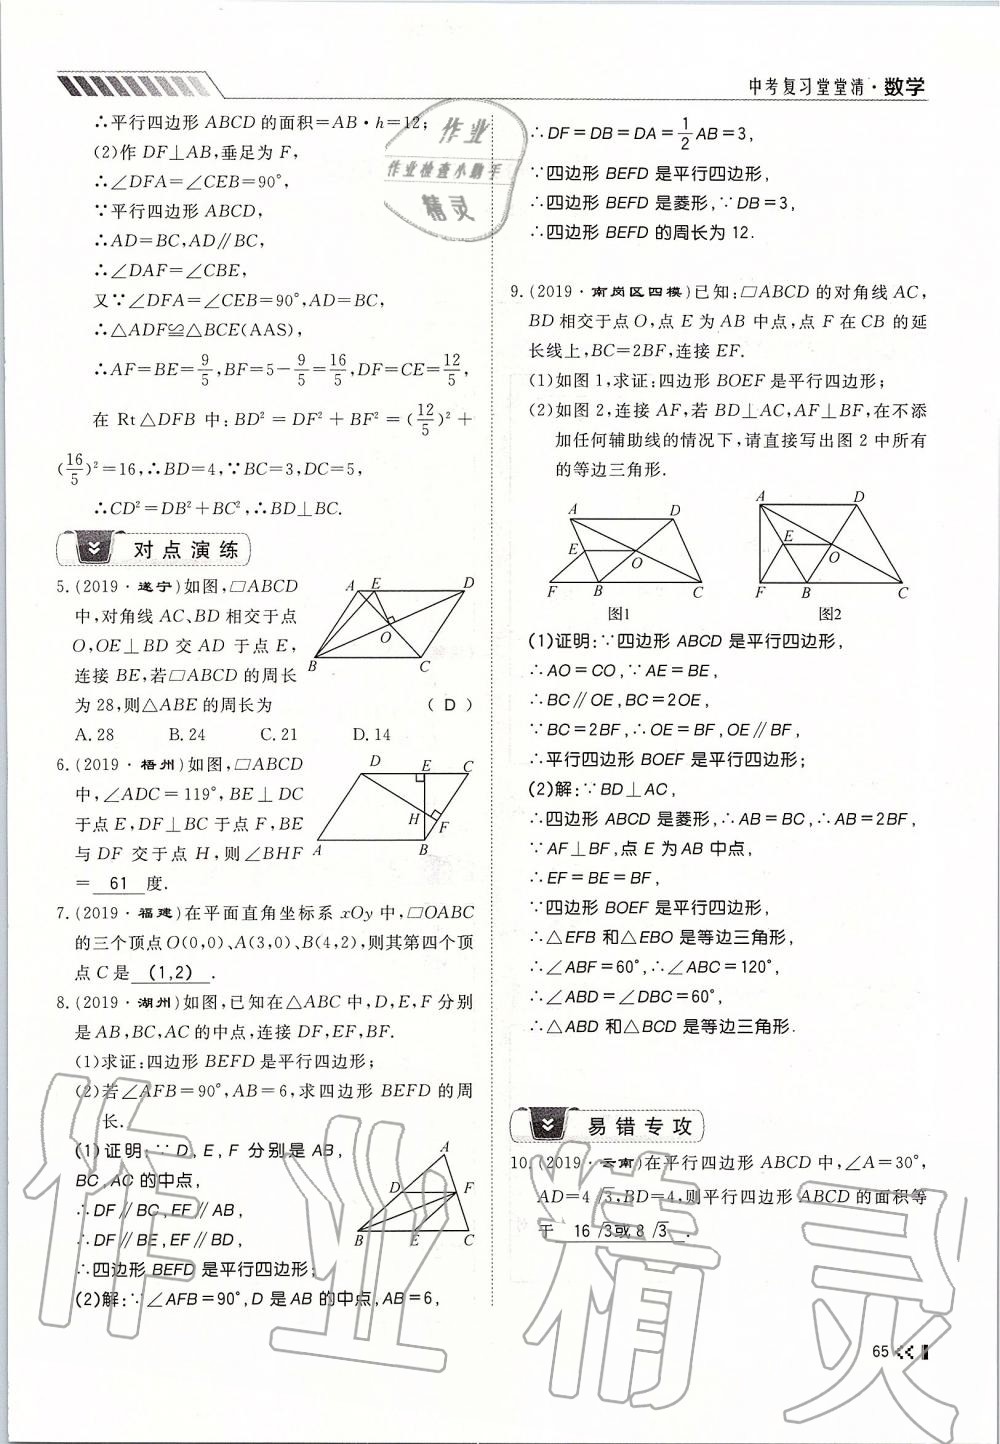 中考复习堂堂清·数学
∴平行四边形 ABCD 的面积=AB·h=12;
(2)作 DF⊥AB,垂足为 F,
∴∠DFA=∠CEB=90°,
∵平行四边形 ABCD,
∴AD=BC,AD∥BC,
∴∠DAF=∠CBE,
又∵∠DFA=∠CEB=90°,AD=BC,
∴△ADF≌△BCE(AAS),
∴AF=BE=9/5,BF=5-9/5=16/5,DF=CE=12/5,
在 Rt△DFB 中:BD²=DF²+BF²=(12/5)²+
(16/5)²=16,∴BD=4,∵BC=3,DC=5,
∴CD²=DB²+BC²,∴BD⊥BC.
对点演练
5.(2019·遂宁)如图,□ABCD
中,对角线 AC、BD 相交于点
O,OE⊥BD 交 AD 于点 E,
连接 BE,若□ABCD 的周长
为 28,则△ABE 的周长为 ( D )
A.28 B.24 C.21 D.14
A E D
O
B C
6.(2019·梧州)如图,□ABCD
中,∠ADC=119°,BE⊥DC
于点 E,DF⊥BC 于点 F,BE
与 DF 交于点 H,则∠BHF
= 61 度.
D E C
H F
A B
7.(2019·福建)在平面直角坐标系 xOy 中,□OABC
的三个顶点 O(0,0)、A(3,0)、B(4,2),则其第四个顶
点 C 是 (1,2) .
8.(2019·湖州)如图,已知在△ABC 中,D,E,F 分别
是 AB,BC,AC 的中点,连接 DF,EF,BF.
(1)求证:四边形 BEFD 是平行四边形;
(2)若∠AFB=90°,AB=6,求四边形 BEFD 的周
长.
(1)证明:∵D,E,F 分别是 AB,
BC,AC 的中点,
∴DF∥BC,EF∥AB,
∴DF∥BE,EF∥BD,
∴四边形 BEFD 是平行四边形;
(2)解:∵∠AFB=90°,D 是 AB 的中点,AB=6,
A
D F
B E C
∴DF=DB=DA=1/2AB=3,
∵四边形 BEFD 是平行四边形,
∴四边形 BEFD 是菱形,∵DB=3,
∴四边形 BEFD 的周长为 12.
9.(2019·南岗区四模)已知:□ABCD 的对角线 AC,
BD 相交于点 O,点 E 为 AB 中点,点 F 在 CB 的延
长线上,BC=2BF,连接 EF.
(1)如图 1,求证:四边形 BOEF 是平行四边形;
(2)如图 2,连接 AF,若 BD⊥AC,AF⊥BF,在不添
加任何辅助线的情况下,请直接写出图 2 中所有
的等边三角形.
A D
E O
F B C
图1
A D
E O
F B C
图2
(1)证明:∵四边形 ABCD 是平行四边形,
∴AO=CO,∵AE=BE,
∴BC∥OE,BC=2OE,
∵BC=2BF,∴OE=BF,OE∥BF,
∴平行四边形 BOEF 是平行四边形;
(2)解:∵BD⊥AC,
∴四边形 ABCD 是菱形,∴AB=BC,∴AB=2BF,
∵AF⊥BF,点 E 为 AB 中点,
∴EF=BE=BF,
∵四边形 BOEF 是平行四边形,
∴△EFB 和△EBO 是等边三角形,
∴∠ABF=60°,∴∠ABC=120°,
∴∠ABD=∠DBC=60°,
∴△ABD 和△BCD 是等边三角形.
易错专攻
10.(2019·云南)在平行四边形 ABCD 中,∠A=30°,
AD=4√3,BD=4,则平行四边形 ABCD 的面积等
于 16√3或8√3 .
65
作业
作业检查小助手
精灵
作业精灵